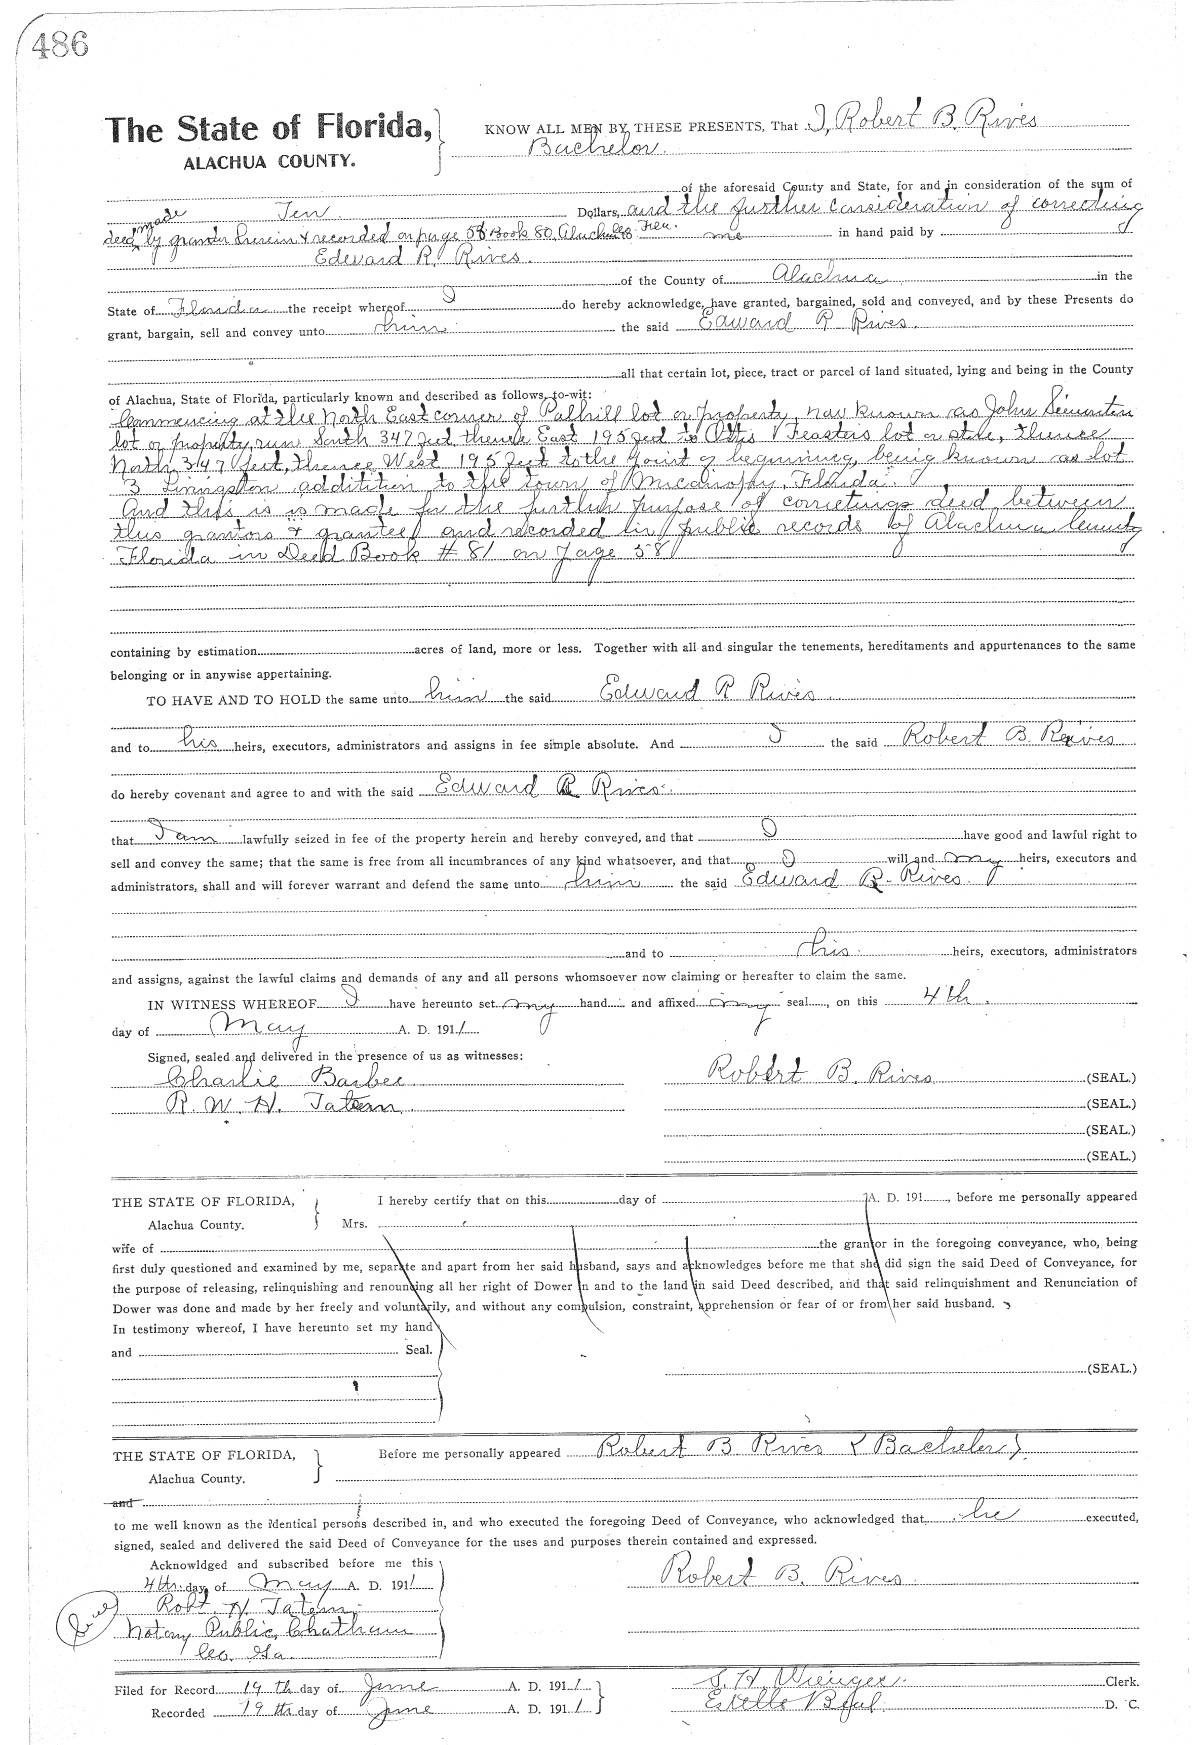 486
The State of Florida, KNOW ALL MEN BY THESE PRESENTS, That I, Robert B. Rives
ALACHUA COUNTY. Bachelor.
of the aforesaid County and State, for and in consideration of the sum of
made Ten Dollars, and the further consideration of correcting
deed by grantor herein & recorded on page 58 Book 80, Alachua me in hand paid by
Edward R. Rives.
of the County of Alachua in the
State of Florida the receipt whereof I do hereby acknowledge, have granted, bargained, sold and conveyed, and by these Presents do
grant, bargain, sell and convey unto him the said Edward R Rives.
all that certain lot, piece, tract or parcel of land situated, lying and being in the County
of Alachua, State of Florida, particularly known and described as follows, to-wit:
Commencing at the North East corner of lot or property, now known as John Simonton
lot or property, run South 347 feet, thence East 195 feet to Feasters lot or stake, thence
North 347 feet, thence West 195 feet to the point of beginning, being known as lot
3 Livingston addition to the town of Micanopy, Florida.
And this is is made for the further purpose of correcting deed between
this grantors & grantee and recorded in public records of Alachua County
Florida in Deed Book # 81 on page 581
containing by estimation acres of land, more or less. Together with all and singular the tenements, hereditaments and appurtenances to the same
belonging or in anywise appertaining.
TO HAVE AND TO HOLD the same unto him the said Edward R Rives
and to his heirs, executors, administrators and assigns in fee simple absolute. And I the said Robert B. Rives
do hereby covenant and agree to and with the said Edward R Rives.
that I am lawfully seized in fee of the property herein and hereby conveyed, and that I have good and lawful right to
sell and convey the same; that the same is free from all incumbrances of any kind whatsoever, and that I will and my heirs, executors and
administrators, shall and will forever warrant and defend the same unto him the said Edward R. Rives.
and to his heirs, executors, administrators
and assigns, against the lawful claims and demands of any and all persons whomsoever now claiming or hereafter to claim the same.
IN WITNESS WHEREOF I have hereunto set my hand and affixed my seal, on this 4th.
day of May A. D. 1911
Signed, sealed and delivered in the presence of us as witnesses:
Charlie Barbee Robert B. Rives (SEAL.)
R. W. H. Tatem. (SEAL.)
(SEAL.)
(SEAL.)
THE STATE OF FLORIDA, I hereby certify that on this day of A. D. 191 , before me personally appeared
Alachua County. Mrs.
wife of the grantor in the foregoing conveyance, who, being
first duly questioned and examined by me, separate and apart from her said husband, says and acknowledges before me that she did sign the said Deed of Conveyance, for
the purpose of releasing, relinquishing and renouncing all her right of Dower in and to the land in said Deed described, and that said relinquishment and Renunciation of
Dower was done and made by her freely and voluntarily, and without any compulsion, constraint, apprehension or fear of or from her said husband.
In testimony whereof, I have hereunto set my hand
and Seal.
(SEAL.)
THE STATE OF FLORIDA, Before me personally appeared Robert B Rives (Bachelor)
Alachua County.
and
to me well known as the identical persons described in, and who executed the foregoing Deed of Conveyance, who acknowledged that he executed,
signed, sealed and delivered the said Deed of Conveyance for the uses and purposes therein contained and expressed.
Acknowldged and subscribed before me this
4th. day of May A. D. 1911 Robert B. Rives.
Robt. H. Tatem.
Notary Public, Chatham
Co. Ga.
Filed for Record 19 th day of June A. D. 1911 S. H. Wienges. Clerk.
Recorded 19 th day of June A. D. 1911 Estelle D. C.